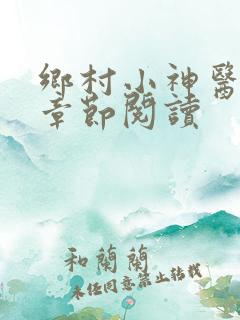 鄉村小神醫
章節閱讀
和蘭蘭
未经同意禁止转载